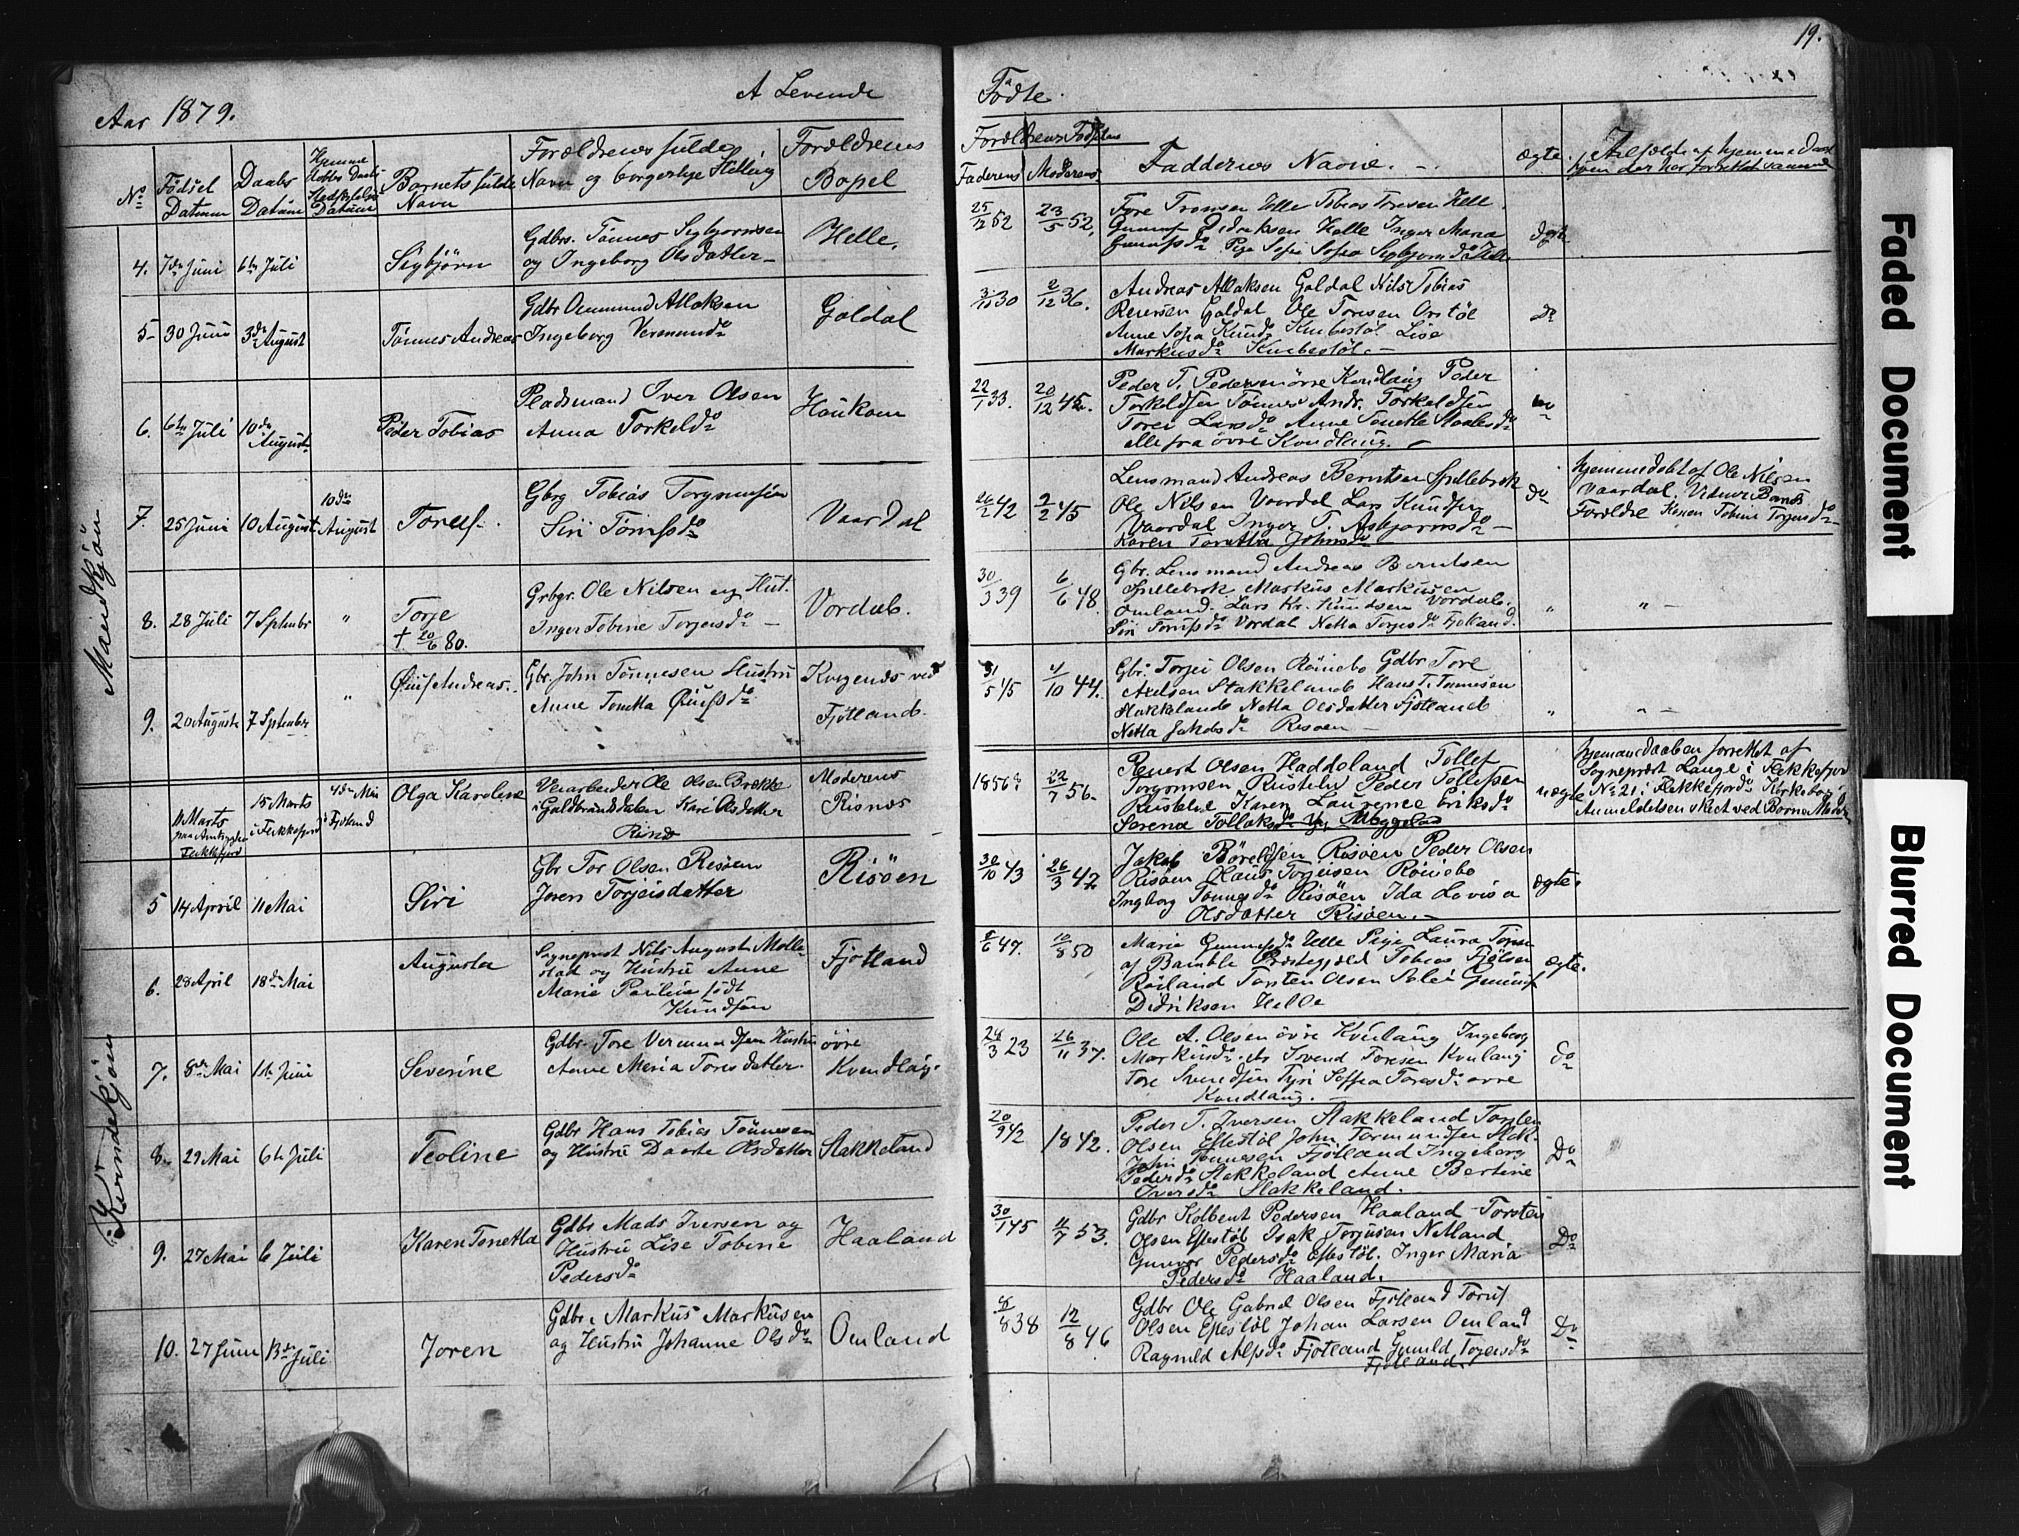 19.
Aar 1879.
A Levende
Födte.
No
Födsel Datum
Daabs Datum
Hjemme Datum
Barnets fulde Navn
Forældrenes fulde Navn og borgerlige Stilling
Forældrenes Bopel
Forældrenes Födsels
Faderens
Moderens
Faddernes Navne.
Ægte.
I Tilfælde af hjemme Daab hven der har forrettet samme
Mandkjön
4. 7de Juni 6te Juli Sigbjörn
Gdbr. Tönnes Sigbjörnsen
og Ingeborg Olsdatter
Helle.
25/12 52 23/5 52.
Tore Tronsen Helle Tobias Toresen Helle.
Didriksen Helle Inger Maria
Ægte
5 30 Juni 3de August Tönnes Andreas
Gdbr Ommund Atlaksen
Ingeborg Vermundsdo
Galdal
30 2/12 36.
Andreas Atlaksen Galdal Nils Tobias
Reiersen Galdal Ole Toresen
Anne Sofia Knudsdo Knibestöl Lise
Markusdo Knibestöl.
do
6. 6te Juli 10de August Peder Tobias
Pladsmand Iver Olsen
Anna Torkelsdo
Houkom
22/1 33. 20/12 45.
Peder T. Pedersen övre Kvndlaug Peder
Torkeldsen Tönnes Andr. Torkeldsen
Larsdo Anne Tonette
alle fra övre Kvndlaug.
do
7. 25 Juni 10 August 10de August
Gbrg Tobias Torgrimsen
Siri Törrisdo
Vaardal
26/2 42 2/2 45
Lensmand Andreas Berntsen Spillebrok
Ole Nilsen Vaardal Lars Knudsen
Vaardal Inger T. Asbjørnsdo
Karen Tonetta Johnsdo
do
hjemmedöbt af Ole Nilsen
Vaardal. Vidner Barnets
Forældre
8. 28 Juli 7 Septembr " Torje
† 20/6 80.
Grbgr. Ole Nilsen og Hust.
Inger Tobine Torjeisdo
Vordal.
30/3 39 6/6 48.
Gbr. Lensmand Andreas Berntsen
Spillebrok Markus Markusen
Omland. Lars Kr. Knudsen Vordal.
Siri Vordal Netta Torjesdo Fjotland.
" "
9. 20 Auguste 7 Septembr " Andreas.
Gbr. John Tönnesen Hustru
Anne Tonetta
Kvigends ved
Fjotland.
31/5 45 4/10 44.
Gbr. Torjei Olsen Röinebo Gdbr Tore
Axelsen Stakkeland Hans T. Tönnesen
Stakkeland Netta Olsdatter Fjotland
Netta Jakobsdo Risøen
" "
Kvindekjön
11 Marts 15 Marts i Flekkefjord 4de Mai i Fjotland
Olga Karoline
Veiarbeider Ole Olsen Brække
i Guldbrandsdalen Olsdatter
Risnes
Moderens
Risnæs
1856? 22/7 56.
Reiert Olsen Haddeland Tollef
Torgrimsen Rusteli Peder Tollefsen
Karen Laurence Eriksdo
Serena Tollaksdo
uægte
hjemmedaaben forrettet af
Sogneprest Lange i Flekkefjord
No 21 i Flekkefjord Kirkebog.
Anmeldelsen skeet ved Barnets Moder
5 14 April 11 Mai Siri
Gbr Tor Olsen Resöen
Joren Torjeisdatter
Risöen
30/10 43 26/3 47.
Jakob Risöen Peder Olsen
Risöen Hans Torjeisen Röinebo
Ingborg Tönnesdo Risöen Ida Lovisa
Olsdatter Risöen.
Ægte.
6. 28 April 18de Mai Augusta
Sogneprest Nils August Molle-
stad og Hustru Anne
Marie Pauline födt
Knudsen
Fjotland
47. 10/8 50
Marie Gunufsdo Helle Pige Laura
af Bamble Prestegjeld Tobias
Röiland Torsten Olsen
Didriksen Helle
Ægte.
7. 8de Mai 1ste Juni Severine
Gdbr. Tore Vermundsen Hustru
Anne Maria Toresdatter
övre
Kvendlög
28/3 23 26/11 37.
Ole A. Olsen övre Kvnlaug Ingeborg
Markusdo Svend Toresen Kvnlaug
Tore Svendsen Toresdo övre
Kvndlaug.
do
8. 29 Mai 6te Juli Teoline
Gdbr Hans Tobias Tönnesen
og Hustru Daarte Olsdatter
Stakkeland
20/9 42 1842.
Peder T. Iversen Stakkeland Torsten
Olsen Eftestöl John Tormundsen
John Tönnesen Fjotland Ingeborg
Pedersdo Stakkeland Anne Bertine
Iversdo Stakkeland.
Do
9. 27 Mai 6 Juli Karen Tonetta
Gdbr Mads Iversen og
Hustru Lise Tobine
Pedersdo
Haaland
30/1 45 11/7 53.
Gdbr Kolbent Pedersen Haaland Torsten
Olsen Eftestöl Isak Torjusen Netland
Gunvor Pedersdo Eftestöl. Inger Maria
Pedersdo Haaland.
Do
10. 27 Juni 13de Juli Joren
Gdbr. Markus Markusen
og Hustru Johanne Olsdo
Omland
8/8 38 12/8 46
Gdbr Ole Gabriel Olsen Fjotland
Olsen Eftestöl Johan Larsen Omland
Ragnild Alfsdo Fjotland Gunild Torjeisdo
Fjotland.
Do
Faded Document
Blurred Document